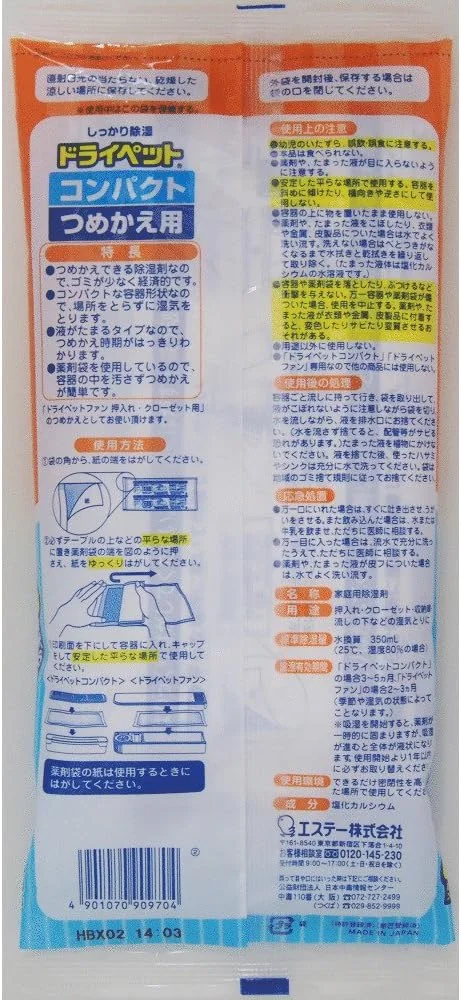 直射日光の当たらない、乾燥した
涼しい場所に保存してください。
外袋を開封後、保存する場合は
袋の口を閉じてください。
※使用中はこの袋を保管する。
しっかり除湿
ドライペット
コンパクト
つめかえ用
特長
●つめかえできる除湿剤なの
で、ゴミが少なく経済的です。
●コンパクトな容器形状なの
で、場所をとらずに湿気を
とります。
●液がたまるタイプなので、
つめかえ時期がはっきりわ
かります。
●薬剤袋を使用しているので、
容器の中を汚さずつめかえ
が簡単です。
「ドライペットファン 押入れ・クローゼット用」
のつめかえとしてお使い頂けます。
使用方法
①袋の角から、紙の端をはがしてください。
紙
②必ずテーブルの上などの平らな場所
に置き薬剤袋の端を図のように押
さえ、紙をゆっくりはがしてください。
印刷面を下にして容器に入れ、キャップ
をして安定した平らな場所で使用して
ください。
<ドライペットコンパクト> <ドライペットファン>
薬剤袋の紙は使用するときに
はがしてください。
4 901070 909704
②
HBX02 14:03
使用上の注意
●幼児のいたずら、誤飲・誤食に注意する。
●本品は食べられない。
●薬剤や、たまった液が目に入らないよう
に注意する。
●安定した平らな場所で使用する。容器を
斜めに傾けたり、横向きや逆さにして使
用しない。
●容器の上に物を置いたまま使用しない。
●薬剤や、たまった液をこぼしたり、衣類
や金属、皮製品についた場合は水でよく
洗い流す。洗えない場合はべとつきがな
くなるまで水拭きと乾拭きを繰り返し
て取り除く。(たまった液体は塩化カル
シウムの水溶液です。)
●容器や薬剤袋を落としたり、ぶつけるなど
衝撃を与えない。万一容器や薬剤袋が傷
ついた場合、使用を中止する。薬剤や、た
まった液が衣類や金属、皮製品に付着する
と、変色したりサビたり変質させるおそ
れがある。
●用途以外に使用しない。
●「ドライペットコンパクト」「ドライペット
ファン」専用なので他の商品には使用しない。
使用後の処理
容器ごと流しに持って行き、袋を取り出して、
液がこぼれないように注意しながら袋を切り、
水を流しながら、液を排水口にお捨てください。
(水を流さず捨てると、配管等がサビる
恐れがあります。)たまった液を植物にかけな
いでください。液を捨てた後、使ったハサミ
やシンクは充分に水で洗ってください。袋は
地域のゴミ捨て規則に従ってお捨てください。
応急処置
●万一口にいれた場合は、すぐに吐き出させ、うが
いをさせる。また飲み込んだ場合は、水または
牛乳を飲ませ、ただちに医師に相談する。
●万一目に入った場合は、流水で充分に洗っ
たうえで、ただちに医師に相談する。
●薬剤や、たまった液が皮フについた場合
は、水でよく洗い流す。
名称 家庭用除湿剤
用途 押入れ・クローゼット・収納庫
流しの下などの湿気とりに
標準除湿量 水換算 350mL
(25℃、湿度80%の場合)
除湿有効期間 「ドライペットコンパクト」
の場合3~5ヵ月、「ドライペット
ファン」の場合2~3ヵ月
(季節や湿気の状態によって
ことなります。)
※吸湿を開始すると、薬剤が
一時的に固まりますが、吸湿
が進むと全体が液状になり
ます。使用開始より1年以内
に必ずお取り替えくださ
使用環境 できるだけ密閉性を高
た場所で使用してくだ
成分 塩化カルシウム
エステー株式会社
〒161-8540 東京都新宿区下落合1-4-10
お客様相談室 0120-145-230
受付時間 9:00~17:00(土・日・祝日を除く)
誤って目や口にはいった際は下記にご相談ください。
公益財団法人 日本中毒情報センター
中毒110番(大阪)☎072-727-2499
(つくば)☎029-852-9999
プラ
袋
(特許登録済)(意匠登録済)
MADE IN JAPAN